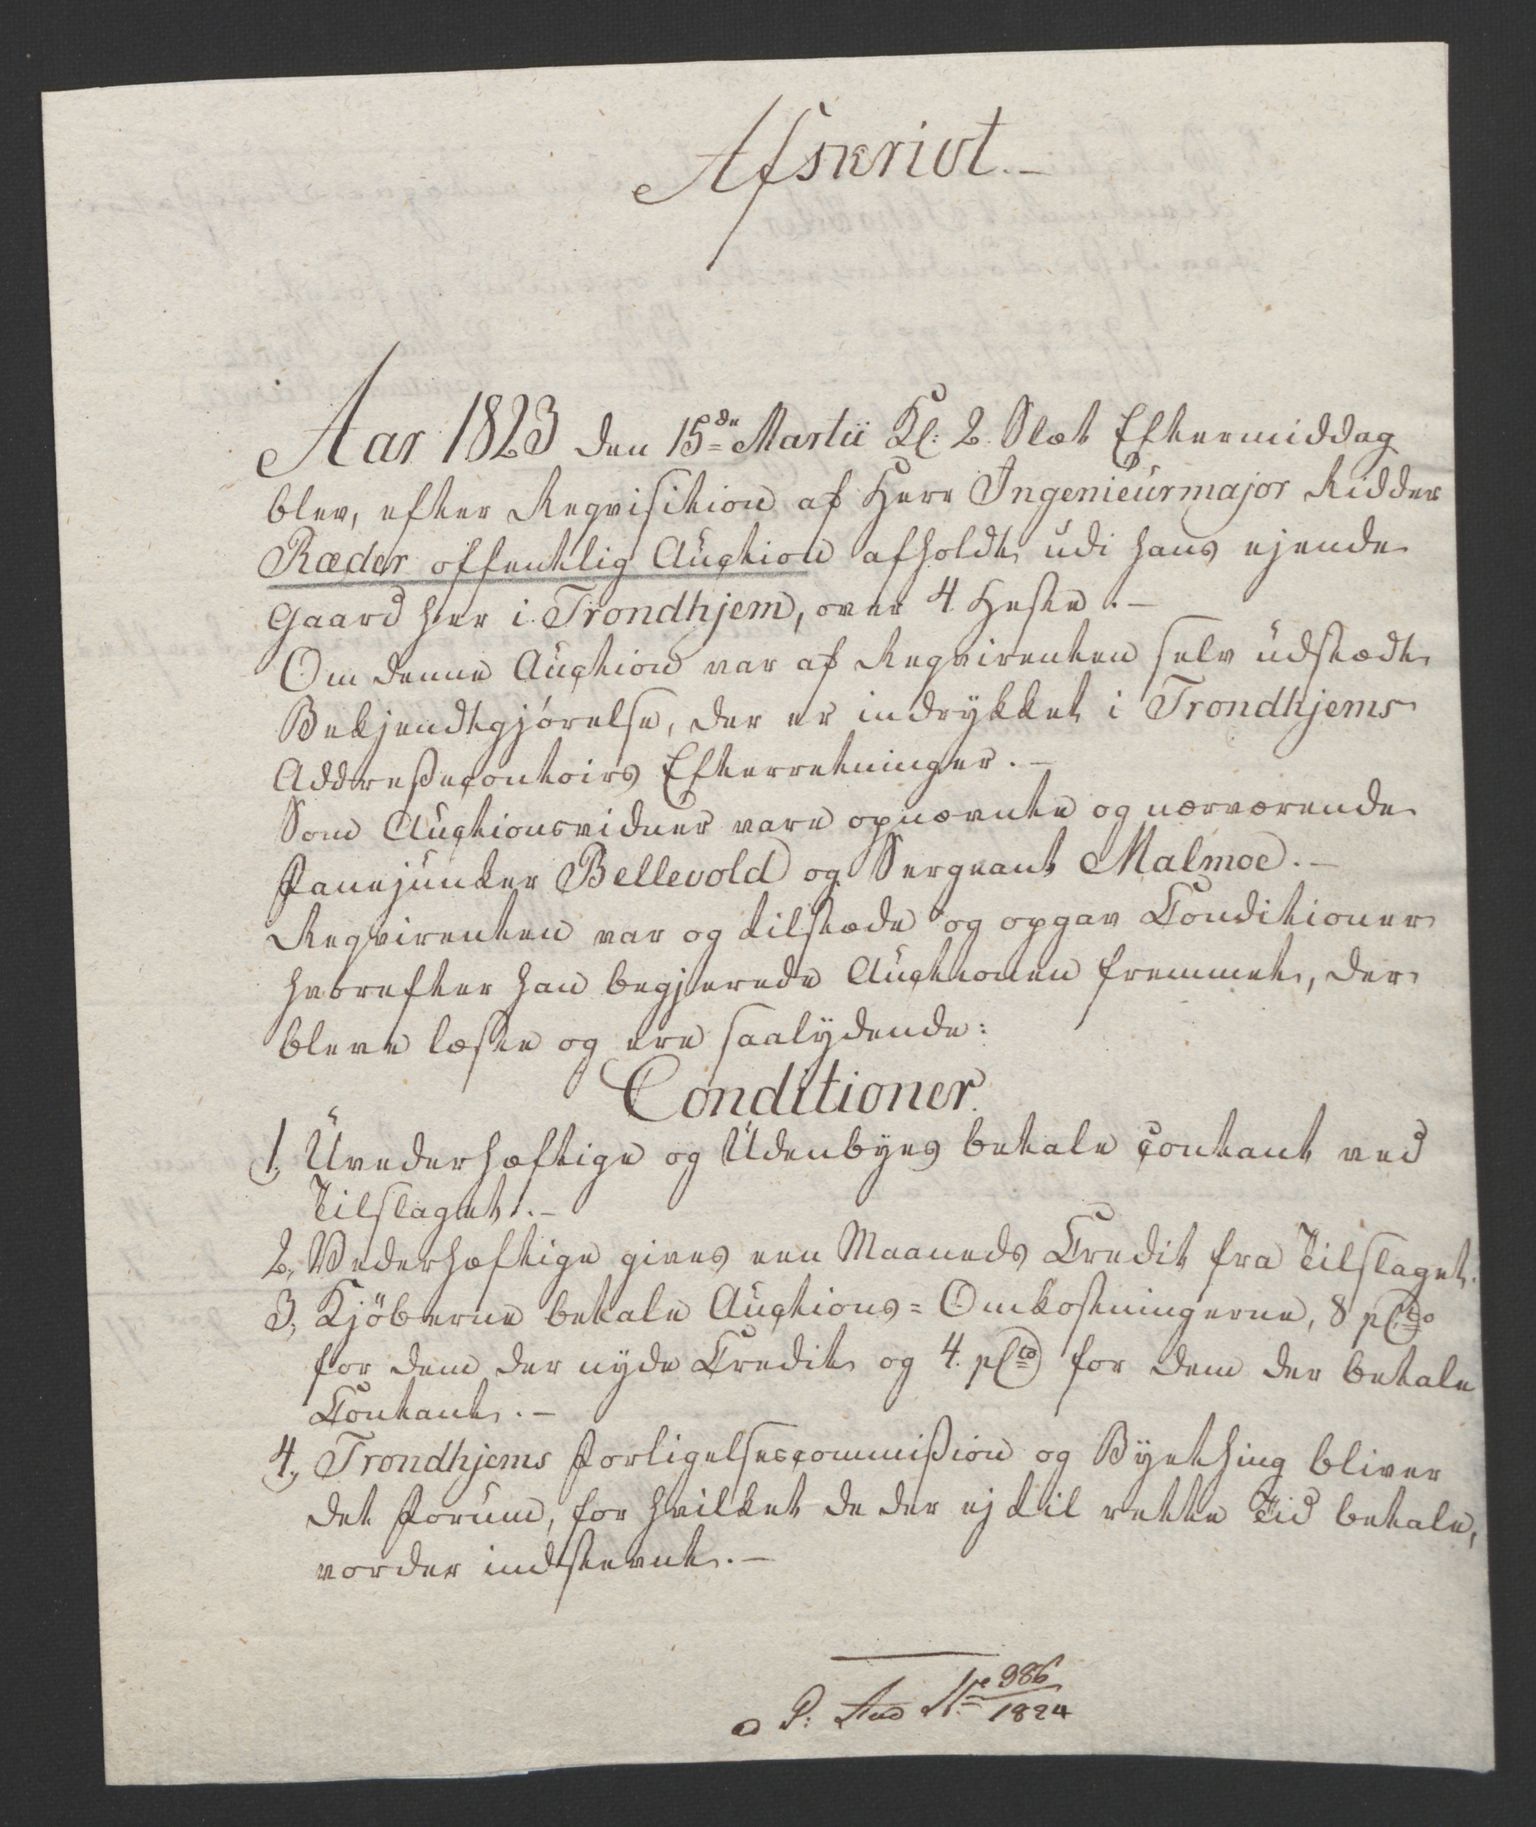 Afskrivt.-
Aar 1823 den 15de Martii Kl: 2 Slæt Eftermiddag
blev, efter Reqvisition af Herr Ingenieurmajor Ridder
Ræder offentlig Auction afholdt udi hans ejende
Gaard her i Trondhjem, over 4 Heste.-
Om denne Auction var af Reqvirenten selv udstædt
Bekjendtgjørelse, der er indrykket i Trondhjems
Addresßecontoirs Efterretninger.-
Som Auctionsvidner vare opnævnte og nærværende
Fanejunker Bellevold og Sergeant Malmoe.-
Reqvirenten var og tilstæde og opgav Conditioner
hvorefter han begjerede Auctionen fremmet, der
bleve læste og ere saalydende:
Conditioner.
1, Uvederhæftige og Udenbyes betale contant ved
Tilslaget.-
2, Vederhæftige gives een Maaneds Credit fra Tilslaget.
3, Kjöberne betale Auctions=Omkostningerne, 8 pCto
for dem der nyde Credit og 4. pCto for dem der betale
Contant.-
4, Trondhjems Forligelsescommißion og Byething bliver
det Forum, for hvilket de der ej til rette Tid betale,
vorder indstevnt.-
P: Aud No 986/1824